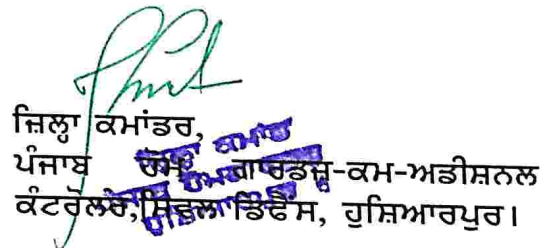 ਜ਼ਿਲ੍ਹਾ ਕਮਾਂਡਰ,
ਪੰਜਾਬ ਹੋਮ ਗਾਰਡਜ਼-ਕਮ-ਅਡੀਸ਼ਨਲ
ਕੰਟਰੋਲਰ, ਸਿਵਲ ਡਿਫੈਂਸ, ਹੁਸ਼ਿਆਰਪੁਰ।